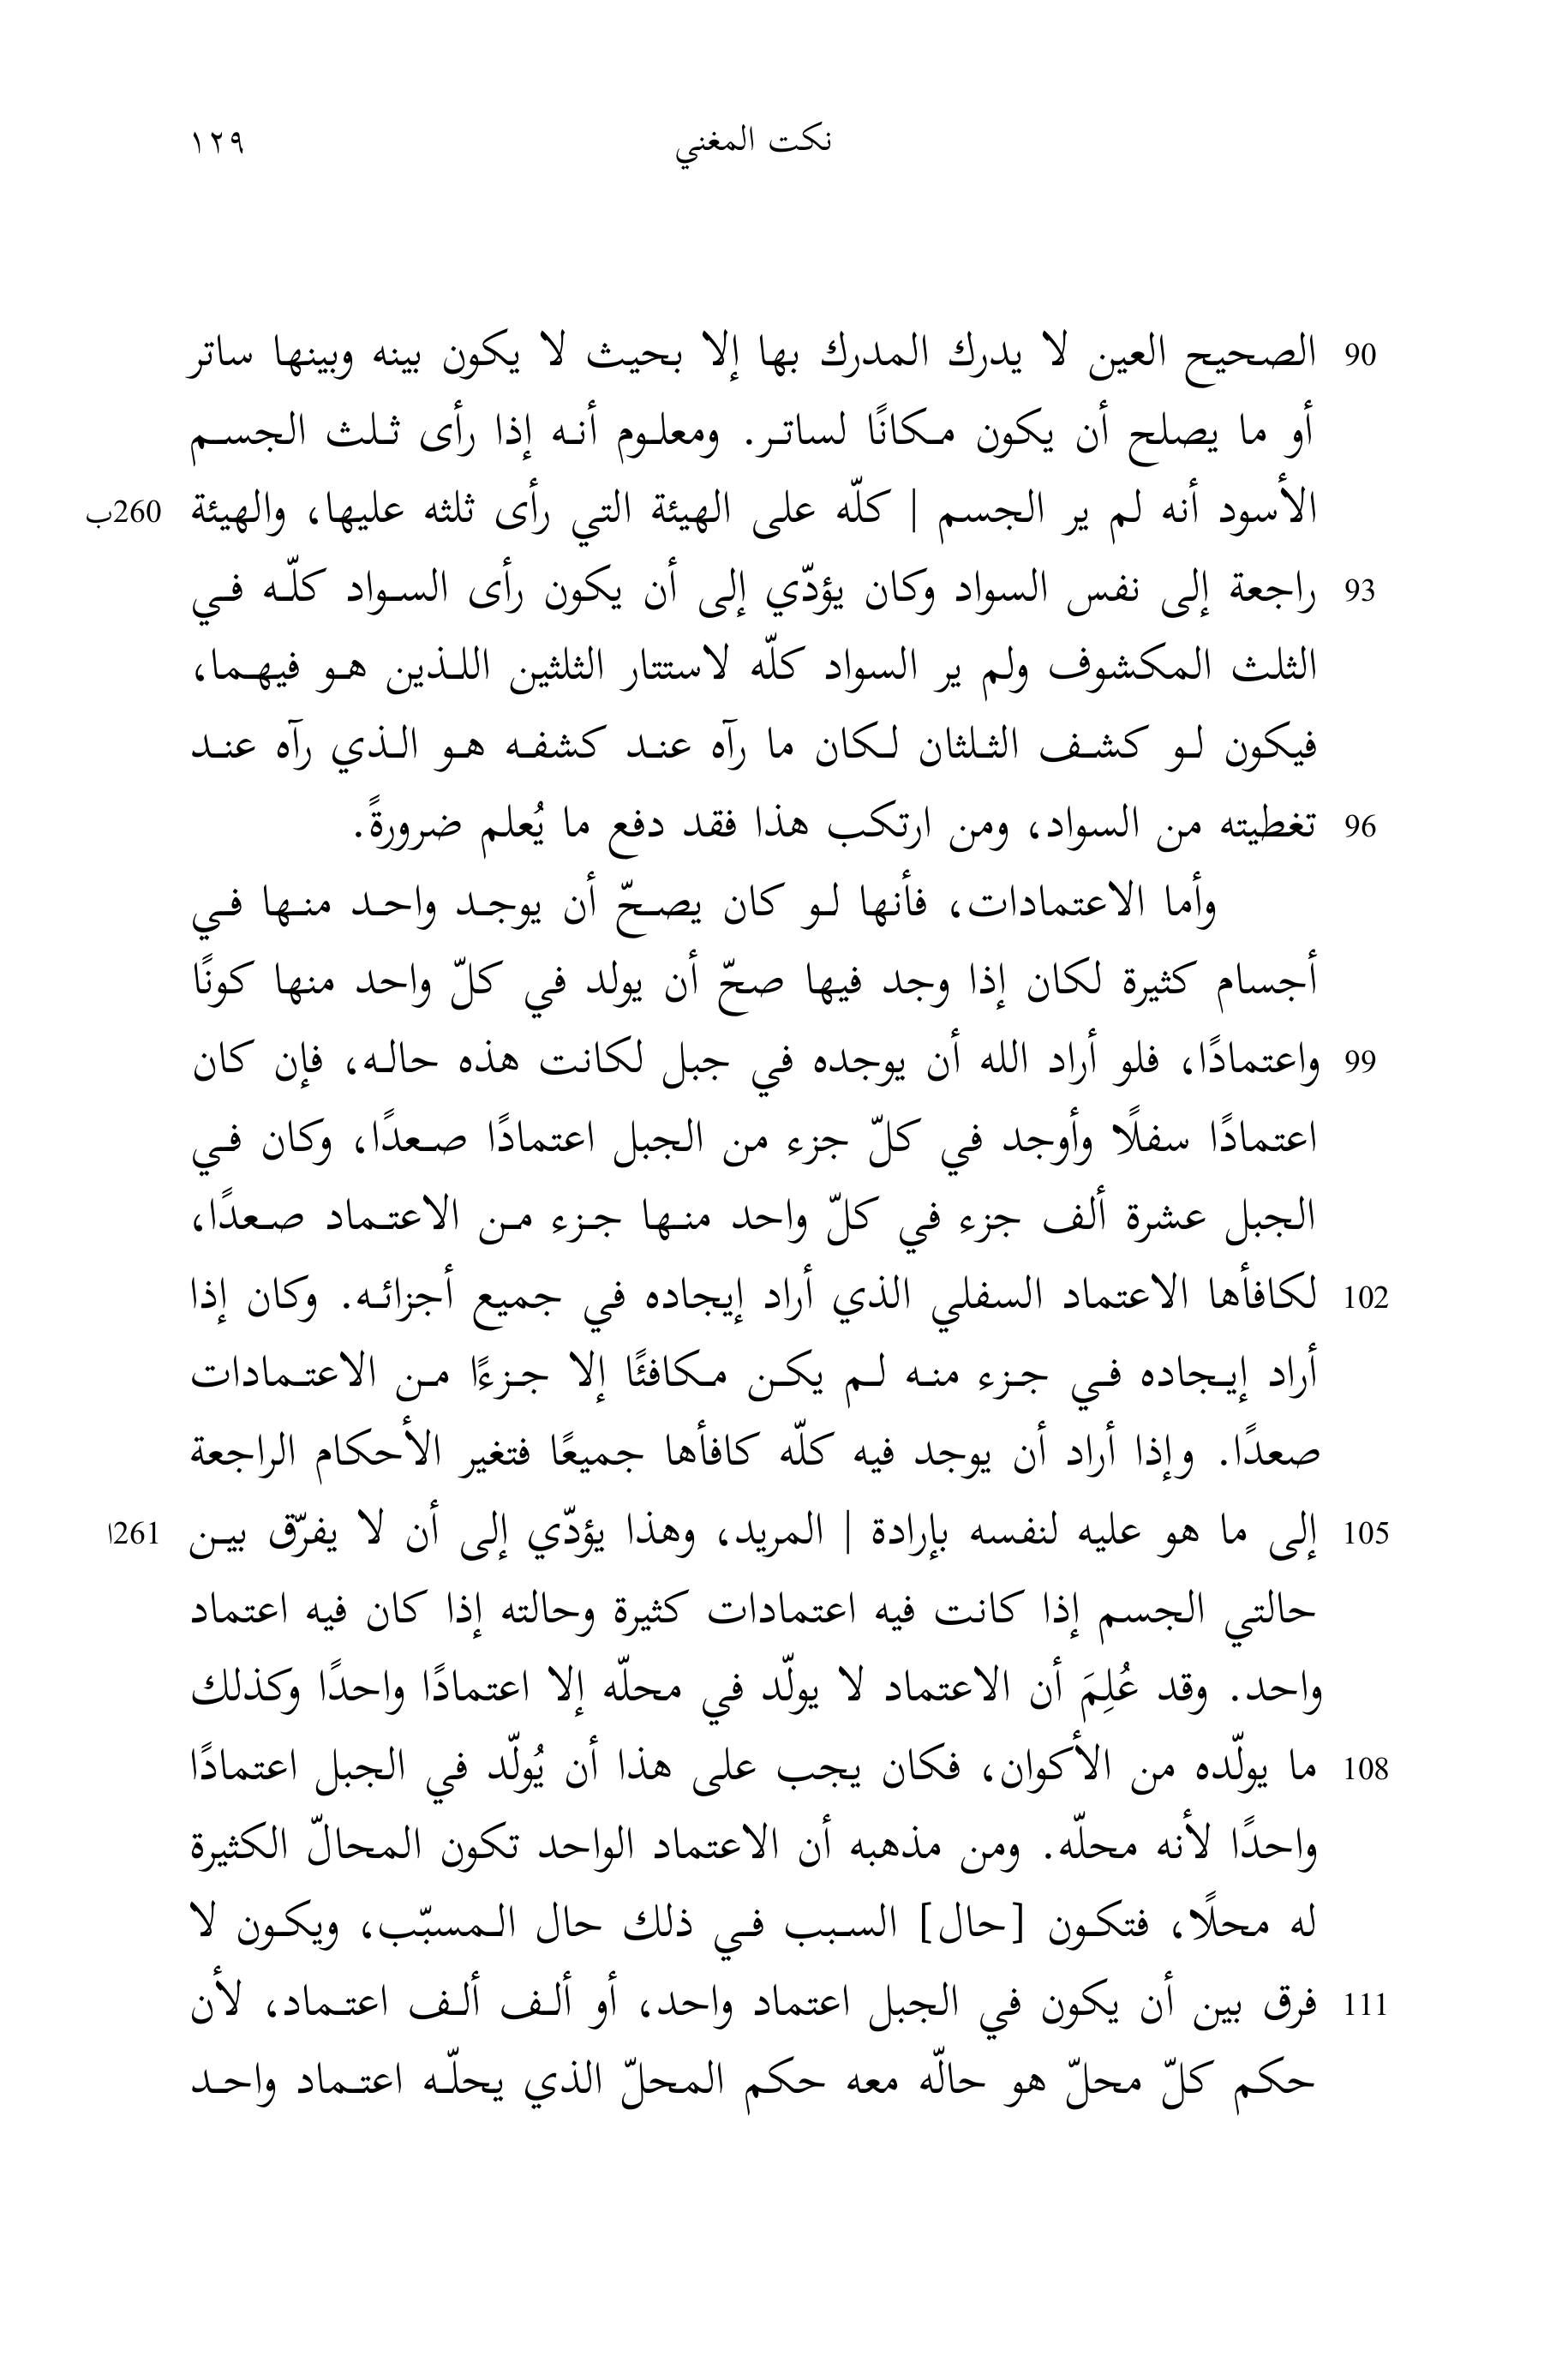 نكت المغني ١٢٩
90 الصحيح العين لا يدرك المدرك بها إلا بحيث لا يكون بينه وبينها ساتر
أو ما يصلح أن يكون مكانًا لساتر. ومعلوم أنه إذا رأى ثلث الجسم
الأسود أنه لم ير الجسم | كلّه على الهيئة التي رأى ثلثه عليها، والهيئة 260ب
93 راجعة إلى نفس السواد وكان يؤدّي إلى أن يكون رأى السواد كلّه في
الثلث المكشوف ولم ير السواد كلّه لاستتار الثلثين اللذين هو فيهما،
فيكون لو كشف الثلثان لكان ما رآه عند كشفه هو الذي رآه عند
96 تغطيته من السواد، ومن ارتكب هذا فقد دفع ما يُعلم ضرورةً.
وأما الاعتمادات، فأنها لو كان يصحّ أن يوجد واحد منها في
أجسام كثيرة لكان إذا وجد فيها صحّ أن يولد في كلّ واحد منها كونًا
99 واعتمادًا، فلو أراد الله أن يوجده في جبل لكانت هذه حاله، فإن كان
اعتمادًا سفلًا وأوجد في كلّ جزء من الجبل اعتمادًا صعدًا، وكان في
الجبل عشرة ألف جزء في كلّ واحد منها جزء من الاعتماد صعدًا،
102 لكافأها الاعتماد السفلي الذي أراد إيجاده في جميع أجزائه. وكان إذا
أراد إيجاده في جزء منه لم يكن مكافئًا إلا جزءًا من الاعتمادات
صعدًا. وإذا أراد أن يوجد فيه كلّه كافأها جميعًا فتغير الأحكام الراجعة
105 إلى ما هو عليه لنفسه بإرادة | المريد، وهذا يؤدّي إلى أن لا يفرّق بين 261ا
حالتي الجسم إذا كانت فيه اعتمادات كثيرة وحالته إذا كان فيه اعتماد
واحد. وقد عُلِمَ أن الاعتماد لا يولّد في محلّه إلا اعتمادًا واحدًا وكذلك
108 ما يولّده من الأكوان، فكان يجب على هذا أن يُولّد في الجبل اعتمادًا
واحدًا لأنه محلّه. ومن مذهبه أن الاعتماد الواحد تكون المحالّ الكثيرة
له محلًا، فتكون [حال] السبب في ذلك حال المسبّب، ويكون لا
111 فرق بين أن يكون في الجبل اعتماد واحد، أو ألف ألف اعتماد، لأن
حكم كلّ محلّ هو حالّه معه حكم المحلّ الذي يحلّه اعتماد واحد